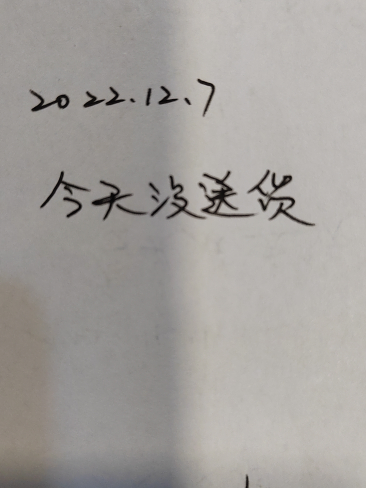 2022.12.7
今天没送货